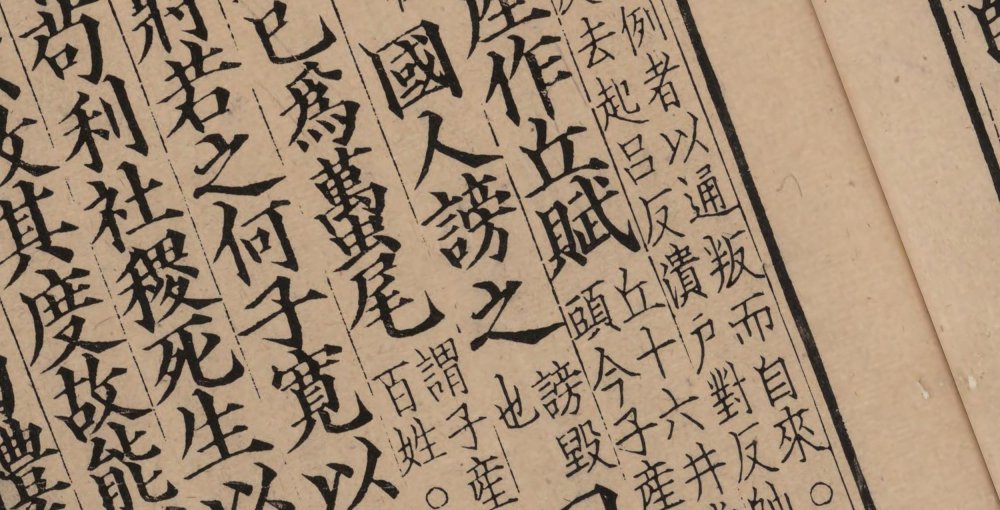 例者以通叛而自來○
去起呂反潰戶對反
產作丘賦
丘十六井
頭今子產
國人謗之
謗毀
也
已為蠆尾
謂子產
百姓○
將若之何子寬以
苟利社稷死生以
改其度故能